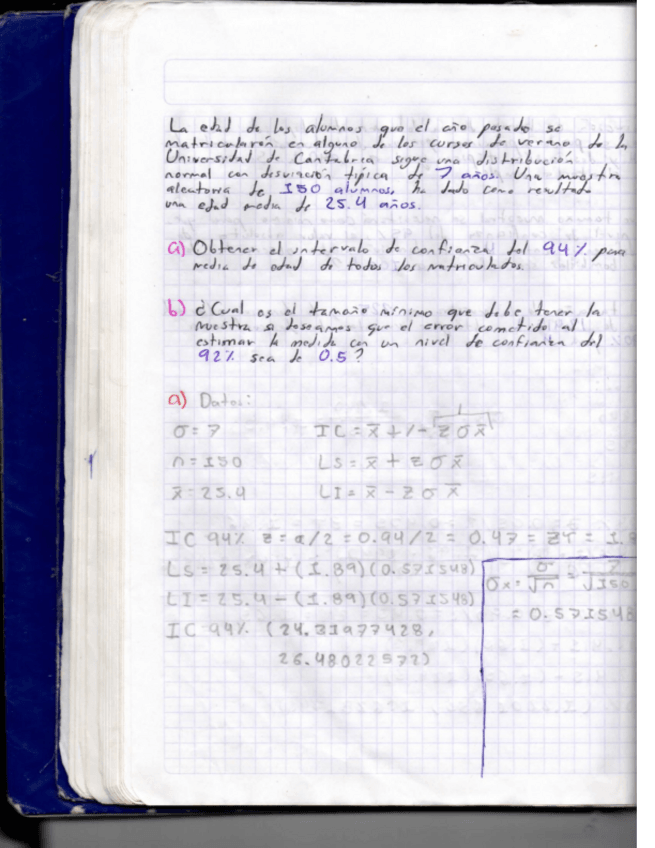 La edad de los alumnos que el año pasado se
matricularón en alguno de los cursos de verano de la
Universidad de Cantabria sigue una distribución
normal con desviación típica de 7 años. Una muestra
aleatoria de 150 alumnos, ha dado como resultado
una edad media de 25.4 años.
a) Obtener el intervalo de confianza del 94% para
media de edad de todos los matriculados.
b) ¿Cual es el tamaño mínimo que debe tener la
muestra si deseamos que el error cometido al
estimar la medida con un nivel de confianza del
92% sea de 0.5?
a) Datos:
σ = 7 IC = x̄ +/- z σ x̄
n = 150 LS = x̄ + z σ x̄
x̄ = 25.4 LI = x̄ - z σ x̄
IC 94% z = a/2 = 0.94/2 = 0.47 = ZT = 1.8
LS = 25.4 + (1.89)(0.571548)
LI = 25.4 - (1.89)(0.571548)
IC 94% (24.31977428,
26.48022572)
σx = σ/√n = 7/√150
= 0.571548